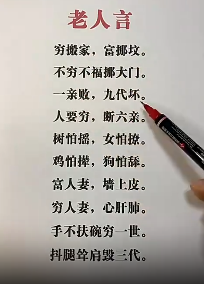 老人言
穷搬家，富挪坟。
不穷不福挪大门。
一亲败，九代坏。
人要穷，断六亲。
树怕摇，女怕撩。
鸡怕樟，狗怕舔。
富人妻，墙上皮。
穷人妻，心肝肺。
手不扶碗穷一世。
抖腿耸肩毁三代。